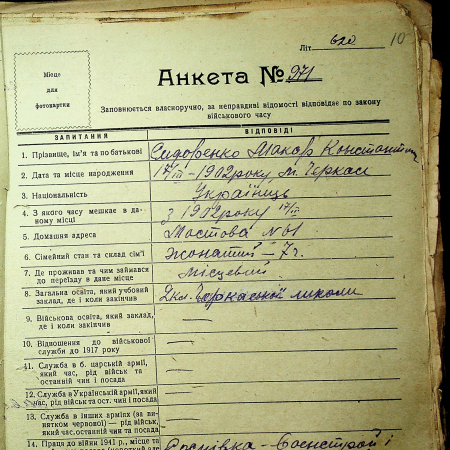 Літ 620 10
Місце
для
фотокартки
Анкета № 971
Заповнюється власноручно, за неправдиві відомості відповідає по закону
військового часу
ЗАПИТАННЯ ВІДПОВІДІ
1. Прізвище, ім'я та по батькові Сидоренко Макар Константин
2. Дата та місце народження 17/III – 1902 року м. Черкаси
3. Національність Українець
4. З якого часу мешкає в да-
ному місці з 1902 року 17/III
5. Домашня адреса Мостова № 61
6. Сімейний стан та склад сім'ї жонатий – 7 ч.
7. Де проживав та чим займався
до переїзду в дане місце місцевий
8. Загальна освіта, який учбовий
заклад, де і коли закінчив 2 кл. Черкаской школи
9. Військова освіта, який заклад,
де і коли закінчив —
10. Відношення до військової
служби до 1917 року —
11. Служба в б. царській армії,
який час, рід військ та
останній чин і посада —
12. Служба в Українській армії, який
час, рід військ та ост. чин і посада —
13. Служба в інших арміях (за ви-
нятком червоної) — рід військ,
який час, останній чин та посада —
14. Праця до війни 1941 р., місце та